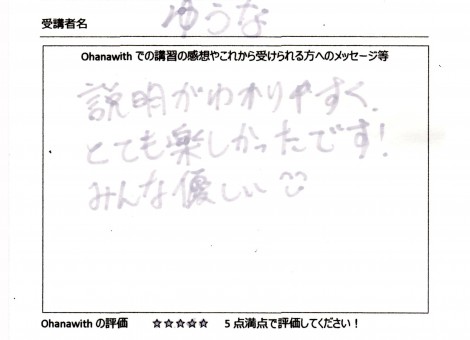 受講者名 ゆうな
Ohanawith での講習の感想やこれから受けられる方へのメッセージ等
説明がわかりやすく、
とても楽しかったです!
みんな優しい
Ohanawith の評価 ☆☆☆☆☆ 5点満点で評価してください！